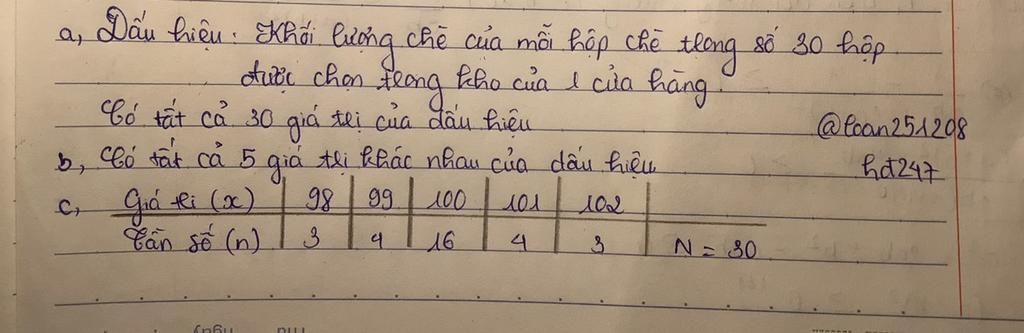 a, Dấu hiệu: Khối lượng chè của mỗi hộp chè trong số 30 hộp
được chọn trong kho của 1 cửa hàng.
Có tất cả 30 giá trị của dấu hiệu
@loan251208
b, Có tất cả 5 giá trị khác nhau của dấu hiệu
hđ247
c, Giá trị (x) 98 99 100 101 102
Tần số (n) 3 4 16 4 3 N = 30